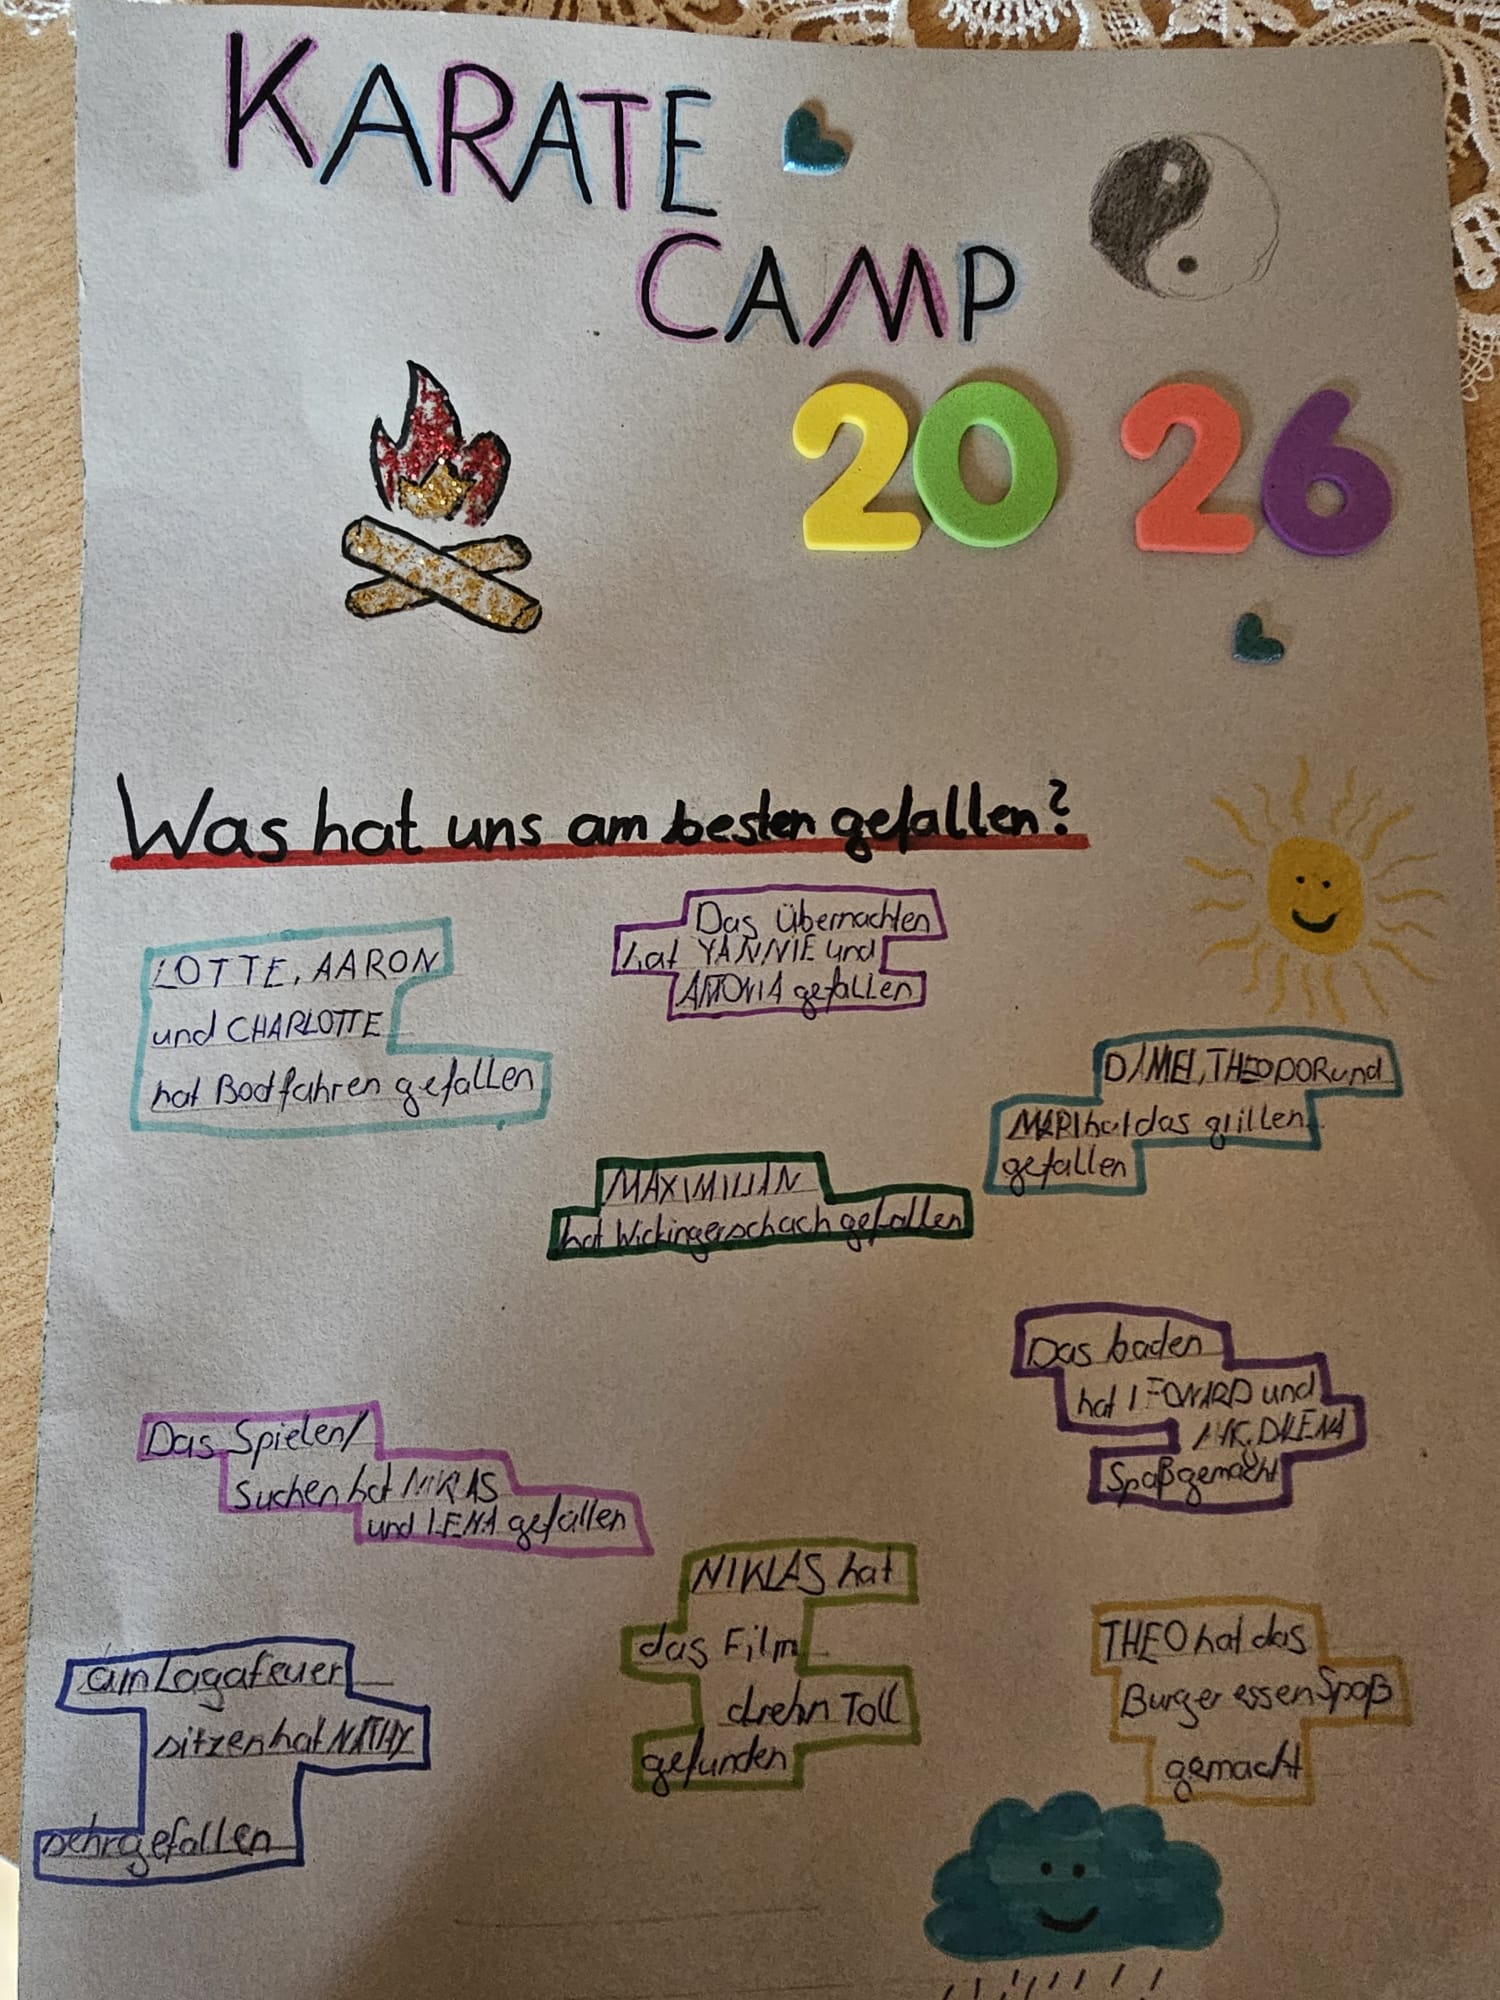 KARATE
CAMP
2026
Was hat uns am besten gefallen?
LOTTE, AARON
und CHARLOTTE
hat Bootfahren gefallen
Das Übernachten
hat YANNIE und
ANTONIA gefallen
DANIEL, THEODOR und
MARI hat das grillen
gefallen
MAXIMILIAN
hat Wickingerschach gefallen
Das baden
hat LEONARD und
Spaß gemacht
Das Spielen/
Suchen hat NIKLAS
und LENA gefallen
NIKLAS hat
das Film
drehn Toll
gefunden
THEO hat das
Burger essen Spaß
gemacht
am Lagafeuer
sitzen hat NATHY
sehr gefallen